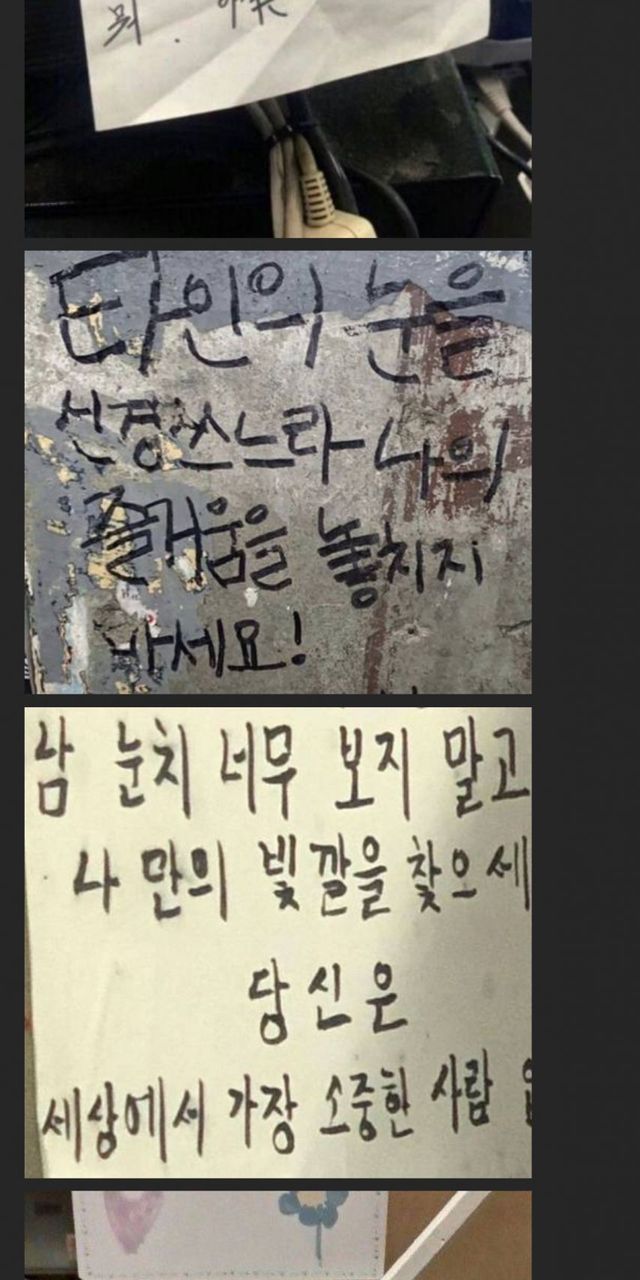 타인의 눈을
신경쓰느라 나의
즐거움을 놓치지
마세요!
남 눈치 너무 보지 말고
나 만의 빛깔을 찾으세
당신은
세상에서 가장 소중한 사람